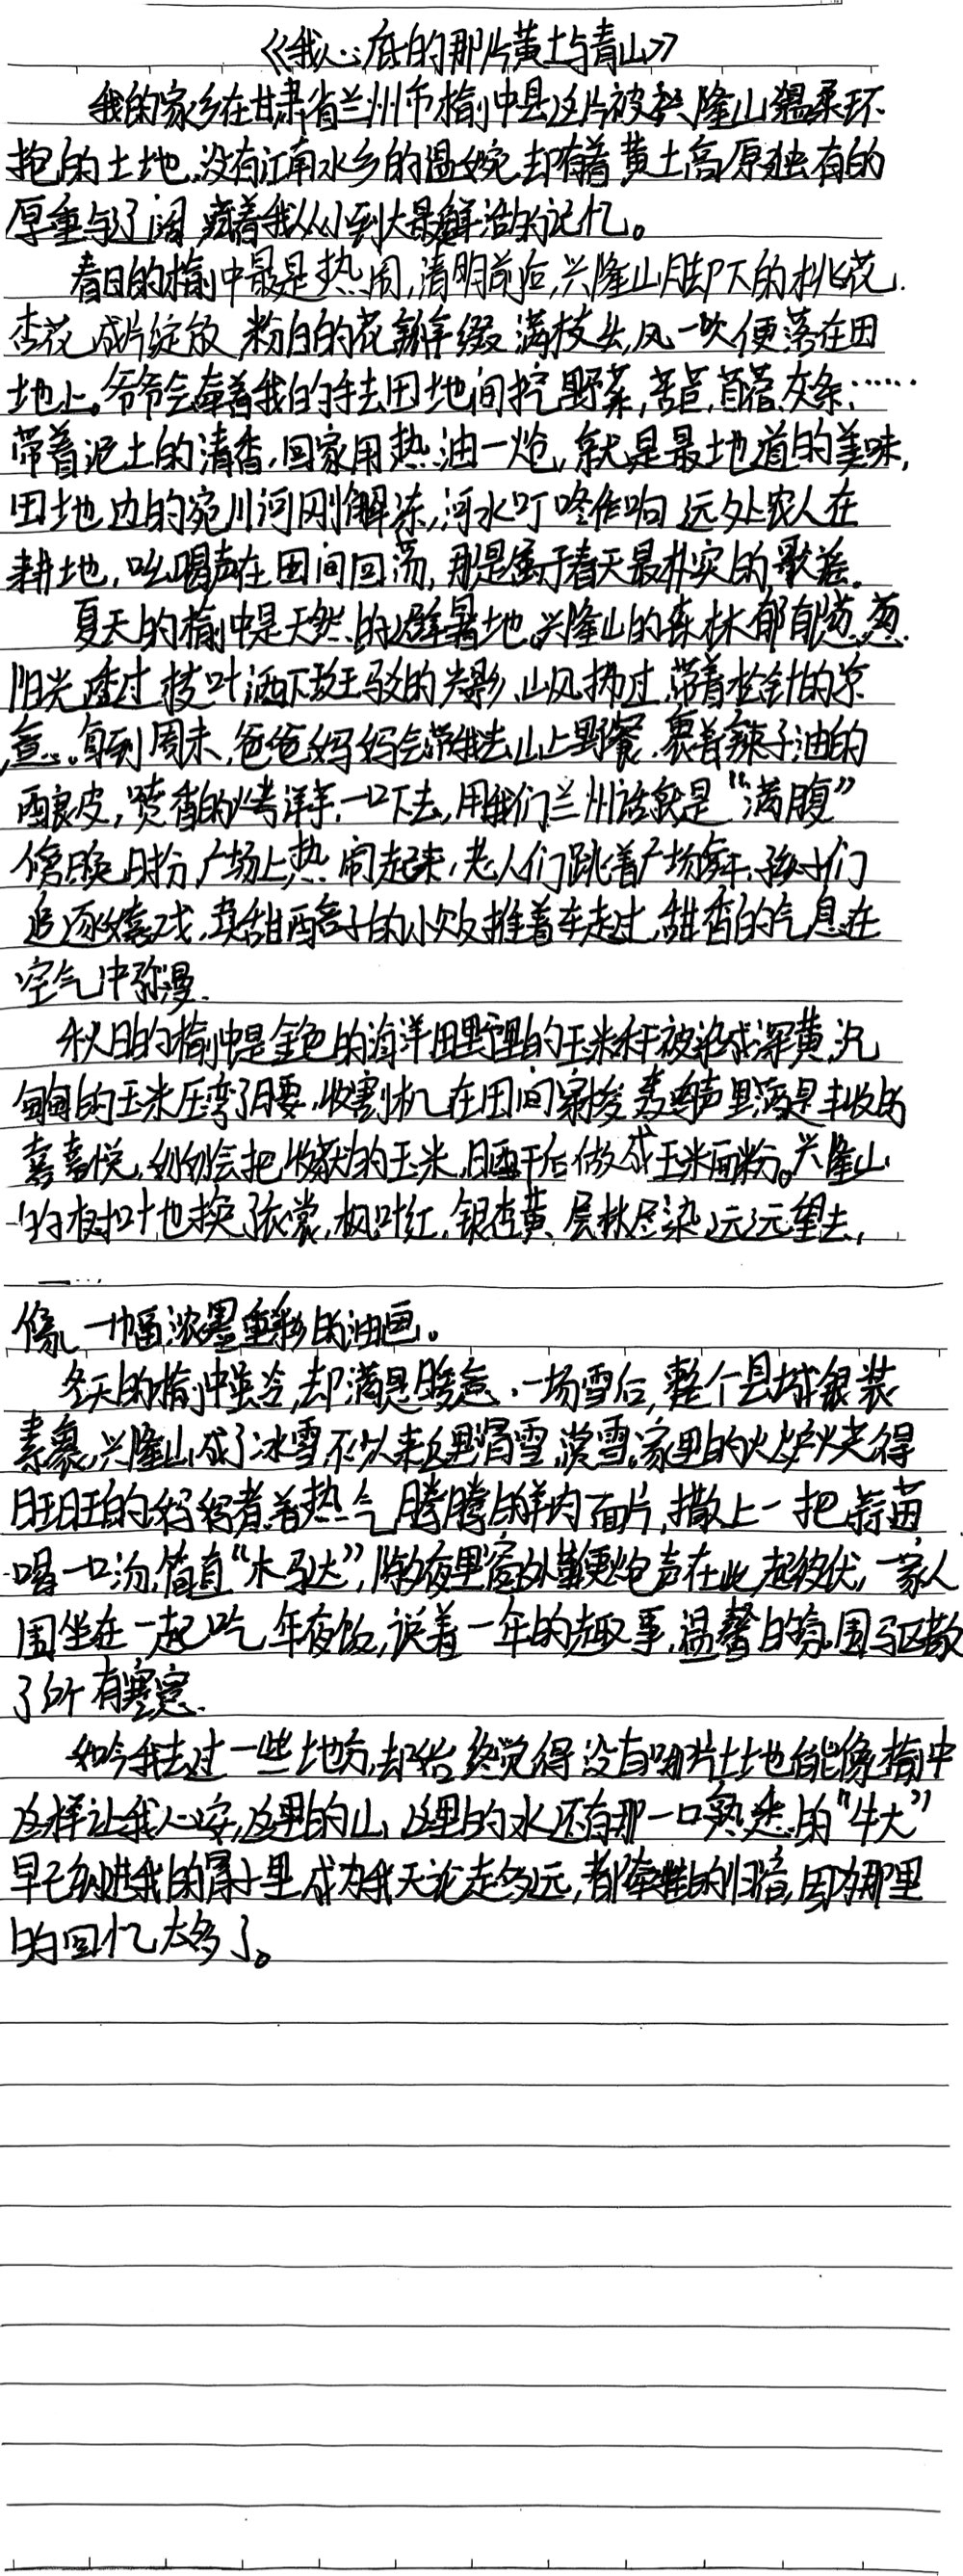 《我心底的那片黄土与青山》
我的家乡在甘肃省兰州市榆中县这片被兴隆山温柔环
抱的土地,没有江南水乡的温婉,却有着黄土高原独有的
厚重与辽阔,藏着我从小到大最鲜活的记忆。
春日的榆中最是热闹,清明前后,兴隆山脚下的桃花.
杏花成片绽放,粉白的花瓣缀满枝头,风一吹便落在田
地上。爷爷会牵着我的手去田地间挖野菜,苦苣,苜蓿,灰条……
带着泥土的清香,回家用热油一炝,就是最地道的美味,
田地边的宛川河刚解冻,河水叮咚作响,远处农人在
耕地,吆喝声在田间回荡,那是属于春天最朴实的歌谣。
夏天的榆中是天然的避暑地,兴隆山的森林郁郁葱葱.
阳光透过枝叶洒下斑驳的光影,山风拂过,带着松针的凉
意。每到周末,爸爸妈妈会带我去山上野餐,裹着辣子油的
酿皮,喷香的烤洋芋,一口下去,用我们兰州话就是“满腹”
傍晚时分,广场上热闹起来,老人们跳着广场舞,孩子们
追逐嬉戏,卖甜醅子的小贩推着车走过,甜香的气息在
空气中弥漫.
秋日的榆中是金色的海洋田野里的玉米秆被染成深黄,沉
甸甸的玉米压弯了腰,收割机在田间穿梭,轰鸣声里满是丰收的
喜悦,奶奶会把收获的玉米,晒干后做成玉米面粉。兴隆山
的树叶也换了衣裳,枫叶红,银杏黄,层林尽染,远远望去,
像一幅浓墨重彩的油画。
冬天的榆中虽冷,却满是暖意,一场雪后,整个县城银装
素裹,兴隆山成了冰雪,不少人来这里滑雪,赏雪,家里的火炉火光得
旺旺的妈妈煮着热气腾腾的羊肉面片,撒上一把蒜苗
喝一口汤,简直“木马达”,除夕夜里窗外鞭炮声在此起彼伏,一家人
围坐在一起吃年夜饭,说着一年的趣事,温馨的氛围驱散
了所有寒意.
如今我去过一些地方,却始终觉得没有哪片土地能像榆中
这样让我心安,这里的山,这里的水还有那一口熟悉的“牛大”
早已刻进我的骨子里,成为我无论走多远,都牵挂的归宿,因为那里
的回忆太多了。